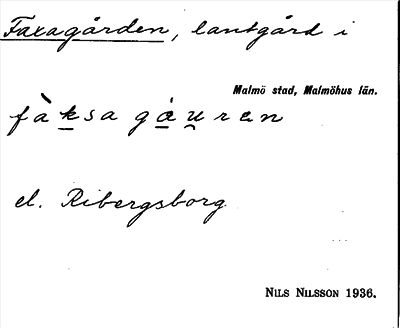 Faxagården, lantgård i
Malmö stad, Malmöhus län.
fàksa gáu̯ren
el. Ribergsborg.
NILS NILSSON 1936.